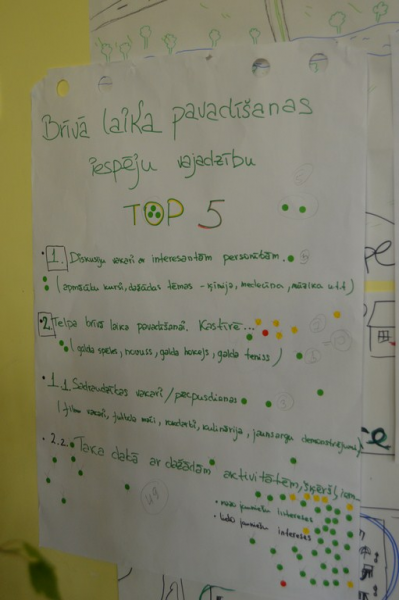 Brīvā laika pavadīšanas
iespēju vajadzību
TOP 5
1. Diskusiju vakari ar interesantām personībām.
(apmācību kursi, dažādas tēmas - ķīmija, medicīna, mūzika u.t.t)
2. Telpa brīvā laika pavadīšanai.
(galda spēles, novuss, galda hokejs, galda teniss)
1.1 Sadraudzības vakari / pēcpusdienas
(filmu vakari, talantu, kulinārija, jaunsargu demonstrējumi)
2.2. Taka dabā ar dažādām aktivitātēm, šķēršļiem
mazo jauniešu intereses
lielo jauniešu intereses
49